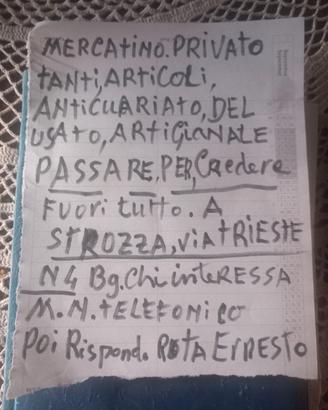 MERCATINO.PRIVATO
tANti,ARtiCOLi,
ANtiCUARiAtO,DEL
USATO,ARtiGiANALE
PASSARE,PER,CREDERE
FUORi tUttO. A
STROZZA,ViA tRiEStE
N4 Bg.Chi iNtERESSA
M.N.tELEFONiCO
POi RiSpOND. ROTA ERNESTO